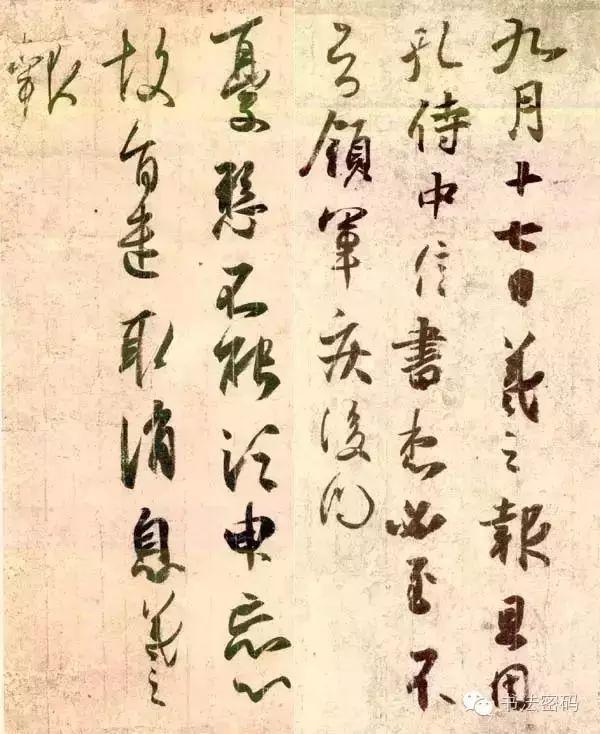 九月十七日羲之報且因
孔侍中信書想必至不
知領軍疾後問
憂懸不能須臾忘心
故旨遣取消息羲之
報
书法密码